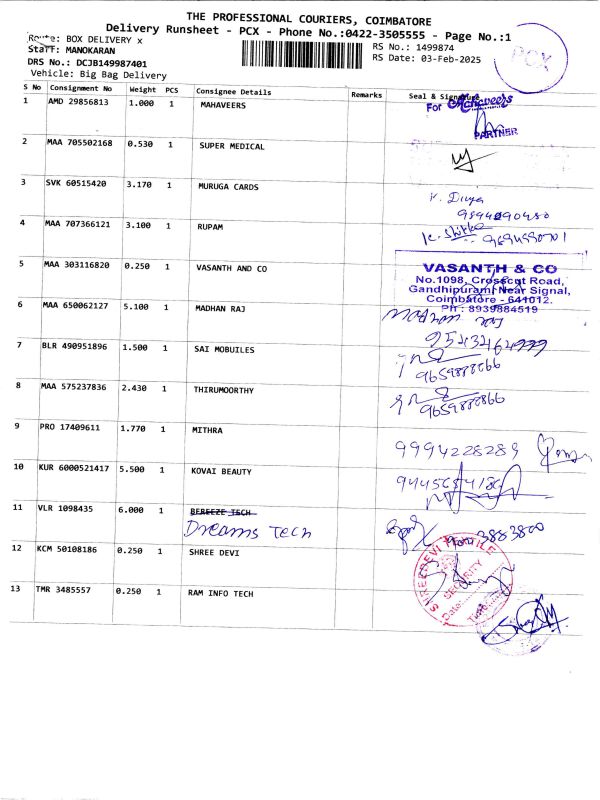 THE PROFESSIONAL COURIERS, COIMBATORE
Delivery Runsheet - PCX - Phone No.:0422-3505555 - Page No.:1
Route: BOX DELIVERY x
RS No.: 1499874
PCX
Staff: MANOKARAN
RS Date: 03-Feb-2025
DRS No.: DCJB149987401
Vehicle: Big Bag Delivery
S No Consignment No Weight PCS Consignee Details Remarks Seal & Signature
1 AMD 29856813 1.000 1 MAHAVEERS For Mahaveers
PARTNER
2 MAA 705502168 0.530 1 SUPER MEDICAL
3 SVK 60515420 3.170 1 MURUGA CARDS K. Divya
4 MAA 707366121 3.100 1 RUPAM
5 MAA 303116820 0.250 1 VASANTH AND CO VASANTH & CO
No.1098, Crosscut Road,
Gandhipuram Near Signal,
Coimbatore - 641012.
Ph : 8939884519
6 MAA 650062127 5.100 1 MADHAN RAJ
7 BLR 490951896 1.500 1 SAI MOBUILES
8 MAA 575237836 2.430 1 THIRUMOORTHY
9 PRO 17409611 1.770 1 MITHRA 9994228289
10 KUR 6000521417 5.500 1 KOVAI BEAUTY
11 VLR 1098435 6.000 1 BEREEZE TECH
Dreams Tech
12 KCM 50108186 0.250 1 SHREE DEVI SHREEDEVI TEXTILE
SECURITY
Date:
Time:
13 TMR 3485557 0.250 1 RAM INFO TECH